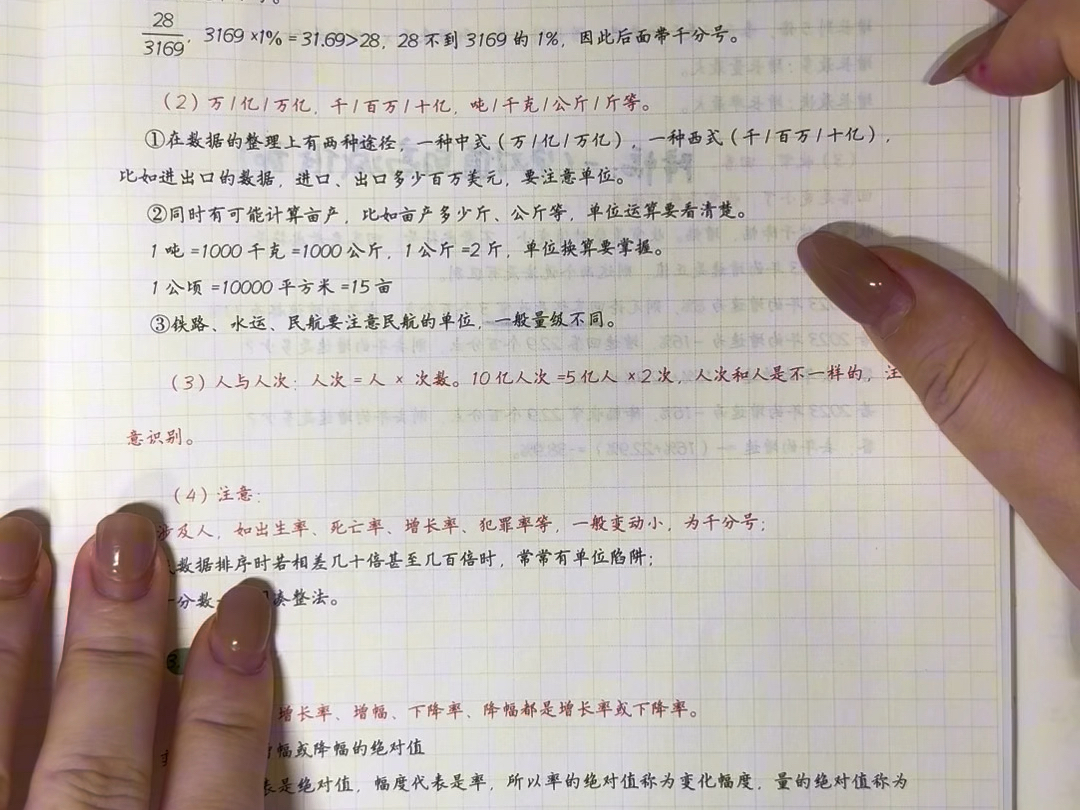 28
3169 . 3169 ×1% = 31.69>28, 28 不到 3169 的 1%, 因此后面带千分号。
(2) 万/亿/万亿, 千/百万/十亿, 吨/千克/公斤/斤等。
①在数据的整理上有两种途径, 一种中式 (万/亿/万亿), 一种西式 (千/百万/十亿),
比如进出口的数据, 进口、出口多少百万美元, 要注意单位。
②同时有可能计算亩产, 比如亩产多少斤、公斤等, 单位运算要看清楚。
1 吨 =1000 千克 =1000 公斤, 1 公斤 =2 斤, 单位换算要掌握。
1 公顷 =10000 平方米 =15 亩
③铁路、水运、民航要注意民航的单位, 一般量级不同。
(3) 人与人次: 人次 = 人 × 次数。10 亿人次 =5 亿人 ×2 次, 人次和人是不一样的, 注
意识别。
(4) 注意:
涉及人, 如出生率、死亡率、增长率、犯罪率等, 一般变动小, 为千分号;
数据排序时若相差几十倍甚至几百倍时, 常常有单位陷阱;
分数 凑整法。
增长率、增幅、下降率、降幅都是增长率或下降率。
幅或降幅的绝对值
表是绝对值, 幅度代表是率, 所以率的绝对值称为变化幅度, 量的绝对值称为